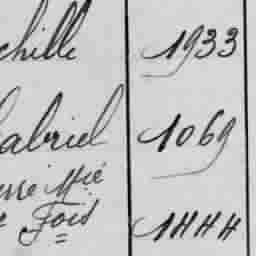 chille 1933
Gabriel 1069
erre Mie
e Fois 1444